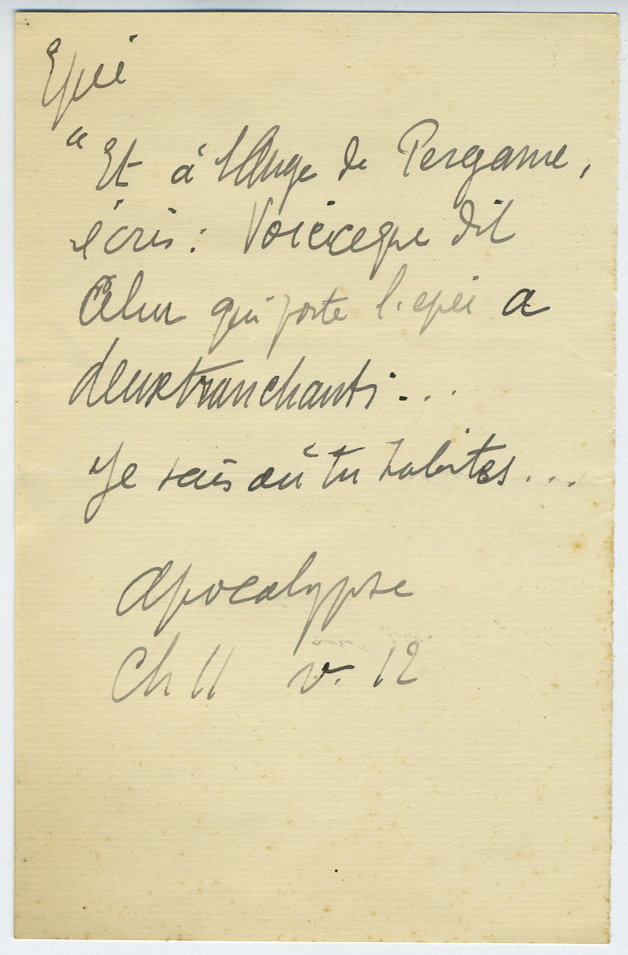 Epée
"Et à l'Ange de Pergame,
écris: Voici ce que dit
Celui qui porte l'epée a
deux tranchants...
Je sais où tu habites...
Apocalypse
Ch II v. 12